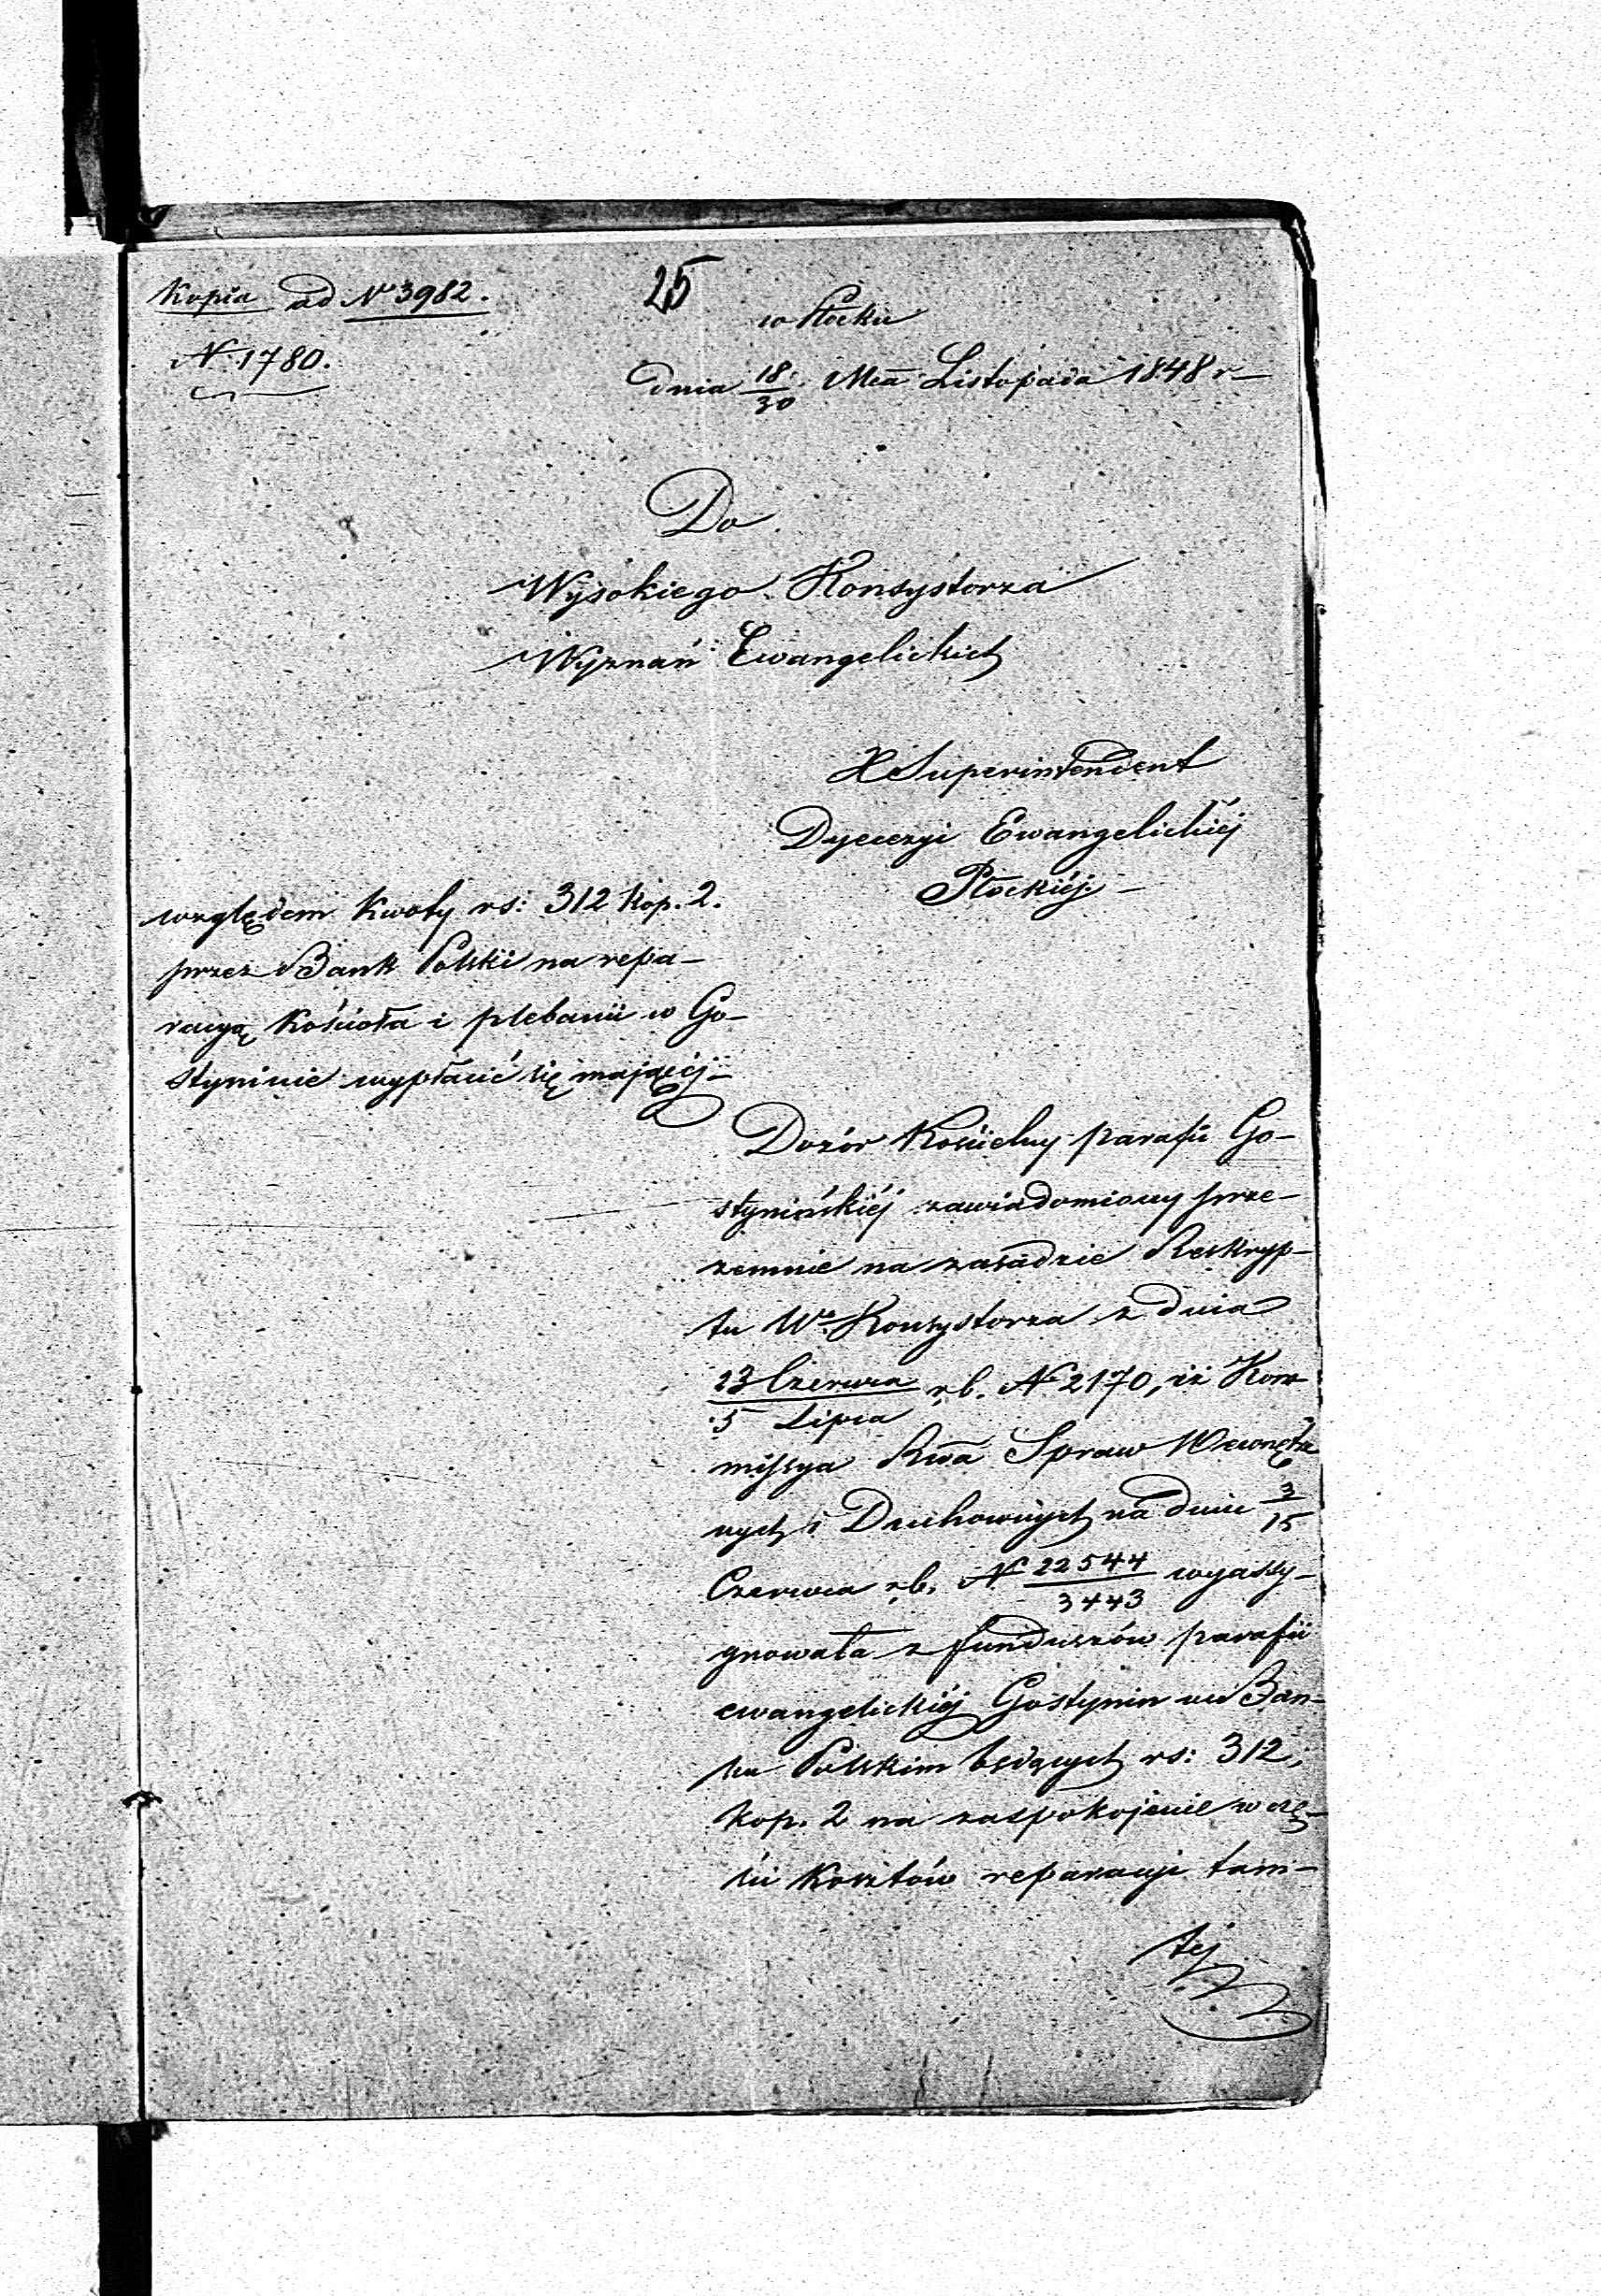 Kopia ad № 3982.
25
w Płocku
№ 1780.
dnia 18/30 Mca Listopada 1848 r
Do
Wysokiego Konsystorza
Wyznań Ewangelickich
X Superintendent
Dyecezyi Ewangelickiéj
Płockiéj.
względem Kwoty rs: 312 kop. 2.
przez Bank Polski na repa-
racyą Kościoła i plebanii w Go-
styninie wypłacić się mającéj.
Dozór Kościelny parafii Go-
stynińskiéj zawiadomiony prze-
zemnie na zasadzie Reskryp-
tu Wo Konsystorza z dnia
23 Czerwca/5 Lipca r.b. № 2170, iż Kom
missya Rwa Spraw Wewnętrz
nych i Duchownych na dniu 3/15
Czerwca r.b. № 22544/3443 wyassy-
gnowała z funduszów parafii
ewangelickiéj Gostynin w Ban-
ku Polskim będących rs: 312,
kop. 2 na zaspokojenie w czę-
ści Kosztów reparacyi tam-
tej